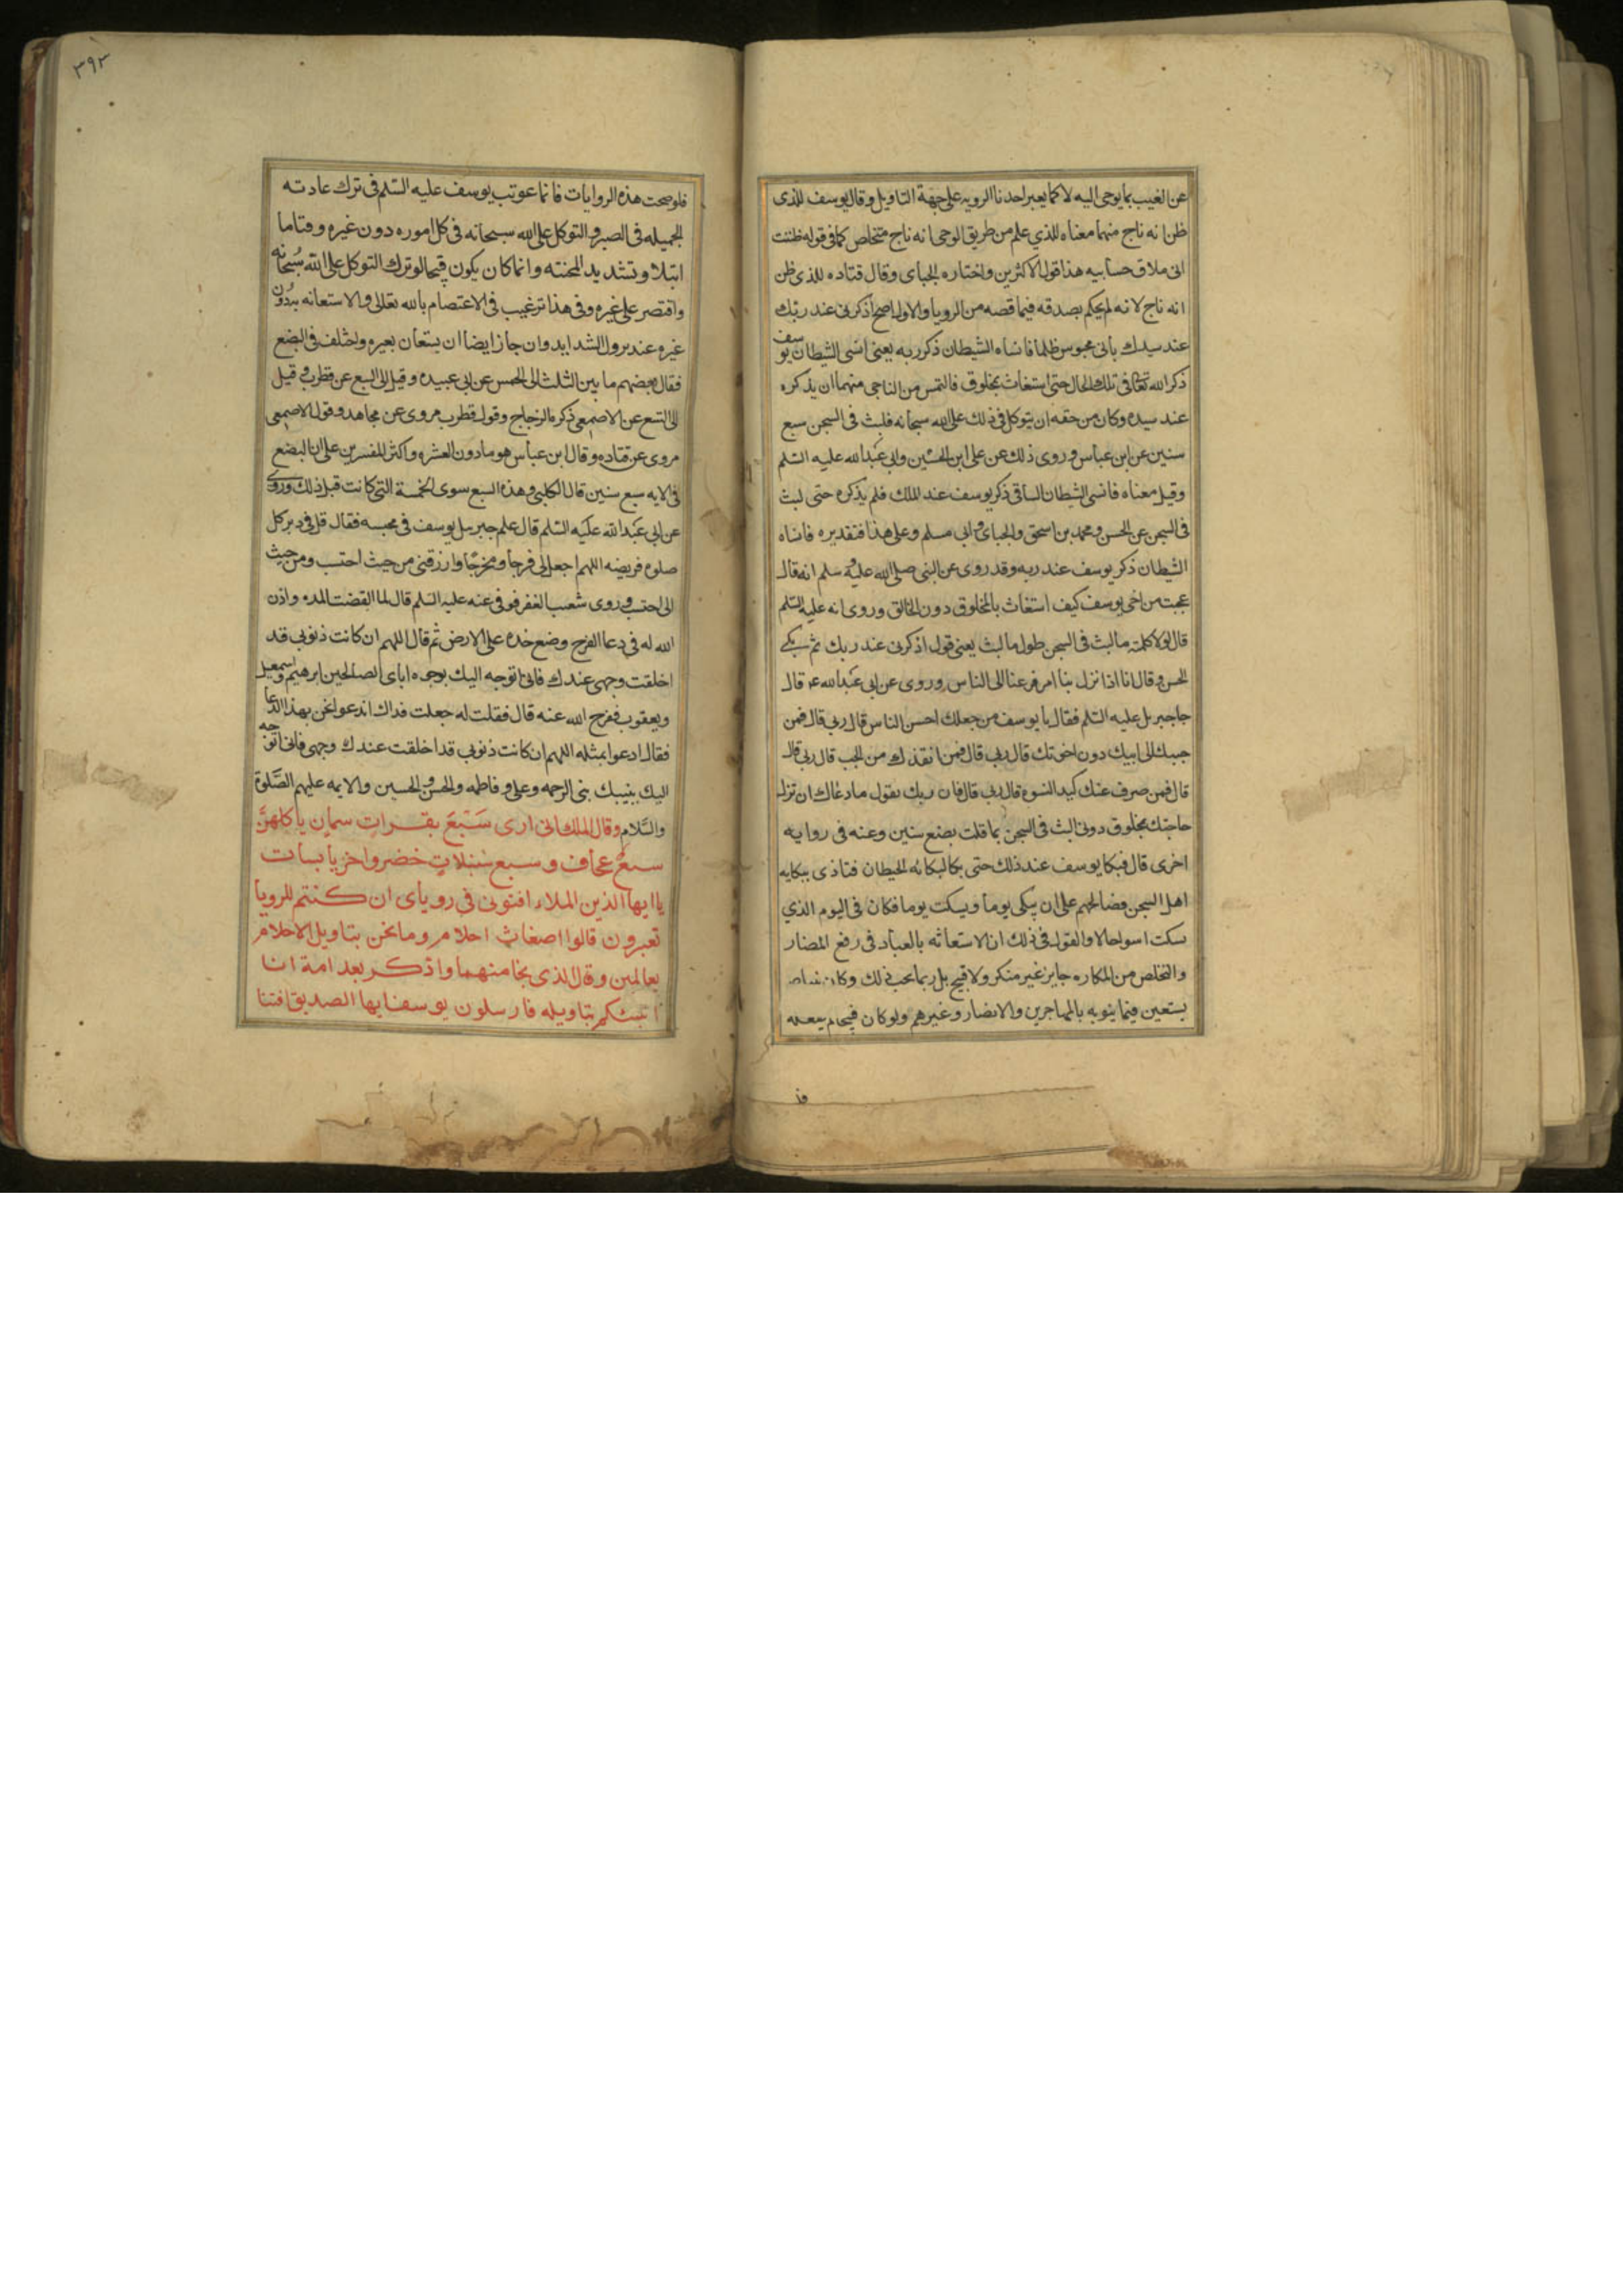 عن الغيب بما يوحى اليه لا كما يعبر احدنا الرويه على جهة التاويل وقال يوسف للذى
ظن انه ناج منهما معناه للذي علم من طريق الوحى انه ناج متخلص كما فى قوله ظننت
انى ملاق حسابيه هذا قول الاكثرين واختاره الجباى وقال قتاده للذى ظن
انه ناج لانه لم يحكم بصدقه فيما قصه من الرويا والاول اصح اذكرنى عند ربك
عند سيدك بانى محبوس ظلما فانساه الشيطان ذكر ربه يعنى انسى الشيطان يوسف
ذكر الله تعالى فى تلك الحال حتى استغاث بمخلوق فالتمس من الناجى منهما ان يذكره
عند سيده وكان من حقه ان يتوكل فى ذلك على الله سبحانه فلبث فى السجن سبع
سنين عن ابن عباس وروى ذلك عن على ابن الحسين وابى عبدالله عليه السلم
وقيل معناه فانسى الشيطان الساقى ذكر يوسف عند الملك فلم يذكره حتى لبث
فى السجن عن الحسن ومحمد بن اسحق والجباى وابى مسلم وعلى هذا فتقديره فانساه
الشيطان ذكر يوسف عند ربه وقد روى عن النبى صلى الله عليه وسلم انه قال
عجبت من اخى يوسف كيف استغاث بالمخلوق دون الخالق وروى انه عليه السلم
قال لولا كلمته ما لبث فى السجن طول ما لبث يعنى قول اذكرنى عند ربك ثم يبكى
الحسن وقال انا اذا نزل بنا امر فزعنا الى الناس وروى عن ابى عبدالله عه قال
جا جبريل عليه السلم فقال يا يوسف من جعلك احسن الناس قال ربى قال فمن
حببك الى ابيك دون اخوتك قال ربى قال فمن انقذك من الجب قال ربى قال
قال فمن صرف عنك كيد النسوه قال ربى قال فان ربك يقول ما دعاك ان تنزل
حاجتك بمخلوق دونى البث فى السجن بما قلت بضع سنين وعنه فى روايه
اخرى قال فبكا يوسف عند ذلك حتى بكا لبكائه الحيطان فتاذى ببكايه
اهل السجن فصالحهم على ان يبكى يوما ويسكت يوما فكان فى اليوم الذي
يسكت اسوا حالا والقول فى ذلك ان الاستعانه بالعباد فى رفع المضار
والتخلص من المكاره جايز غير منكر ولا قبيح بل ربما يجب ذلك وكان نبينا ص
يستعين فيما ينوبه بالمهاجرين والانصار وغيرهم ولو كان قبيحا لم يفعله
٣٩٣
فلو صحت هذه الروايات فانما عوتب يوسف عليه السلم فى ترك عادته
الجميله فى الصبر والتوكل على الله سبحانه فى كل اموره دون غيره وقتاما
ابتلا وتشديد المحنته وانما كان يكون قبيحا لو ترك التوكل على الله سبحانه
واقتصر على غيره وفى هذا ترغيب فى الاعتصام بالله تعالى والاستعانه بدون
غيره عند نزول الشدايد وان جاز ايضا ان يستعان بغيره واختلف فى البضع
فقال بعضهم ما بين الثلث الى الخمس عن ابى عبيده وقيل الى السبع عن قطرب وقيل
الى التسع عن الاصمعى ذكره الزجاج وقول قطرب مروى عن مجاهد وقول الاصمعى
مروى عن قتاده وقال ابن عباس هو ما دون العشره واكثر المفسرين على ان البضع
فى الايه سبع سنين قال الكلبى وهذه السبع سوى الخمسة التى كانت قبل ذلك وروى
عن ابى عبدالله عليه السلم قال علم جبريل يوسف فى محبسه فقال قل فى دبر كل
صلوه فريضه اللهم اجعل لى فرجا ومخرجا وارزقنى من حيث احتسب ومن حيث
الى احتسب وروى شعيب العقرقوفى عنه عليه السلم قال لما انقضت المده واذن
الله له فى دعا الفرج وضع خده على الارض ثم قال اللهم ان كانت ذنوبى قد
اخلقت وجهى عندك فانى اتوجه اليك بوجوه اباى الصالحين ابرهيم واسمعيل
ويعقوب ففرج الله عنه قال فقلت له جعلت فداك اندعوا نحن بهذا الدعا
فقال ادعوا بمثله اللهم ان كانت ذنوبى قد اخلقت عندك وجهى فانى اتوجه
اليك بنبيك نبى الرحمه وعلى وفاطمه والحسن والحسين والايمه عليهم الصلوة
والسلام وقال الملك انى ارى سبع بقرات سمان ياكلهن
سبع عجاف وسبع سنبلات خضر واخر يابسات
ياايها الذين الملاء افتونى فى روياى ان كنتم للرويا
تعبرون قالوا اضغاث احلام وما نحن بتاويل الاحلام
بعالمين وقال الذى نجا منهما واذكر بعد امة انا
انبئكم بتاويله فارسلون يوسف ايها الصديق افتنا